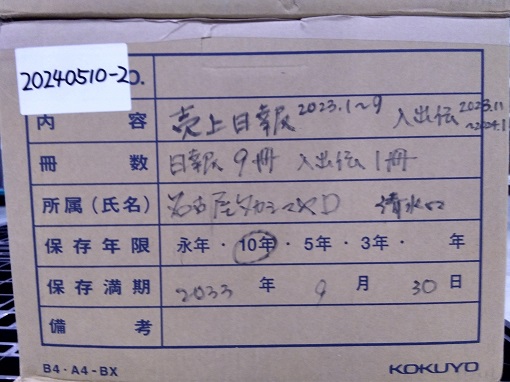 20240510-20.
内容 売上日報 2023.1~9 入出伝 2023.11~2024.1
冊数 日報9冊 入出伝1冊
所属(氏名) 名古屋タカシマヤD 清水
保存年限 永年・10年・5年・3年・ 年
保存満期 2033年 9月 30日
備考
B4・A4-BX KOKUYO